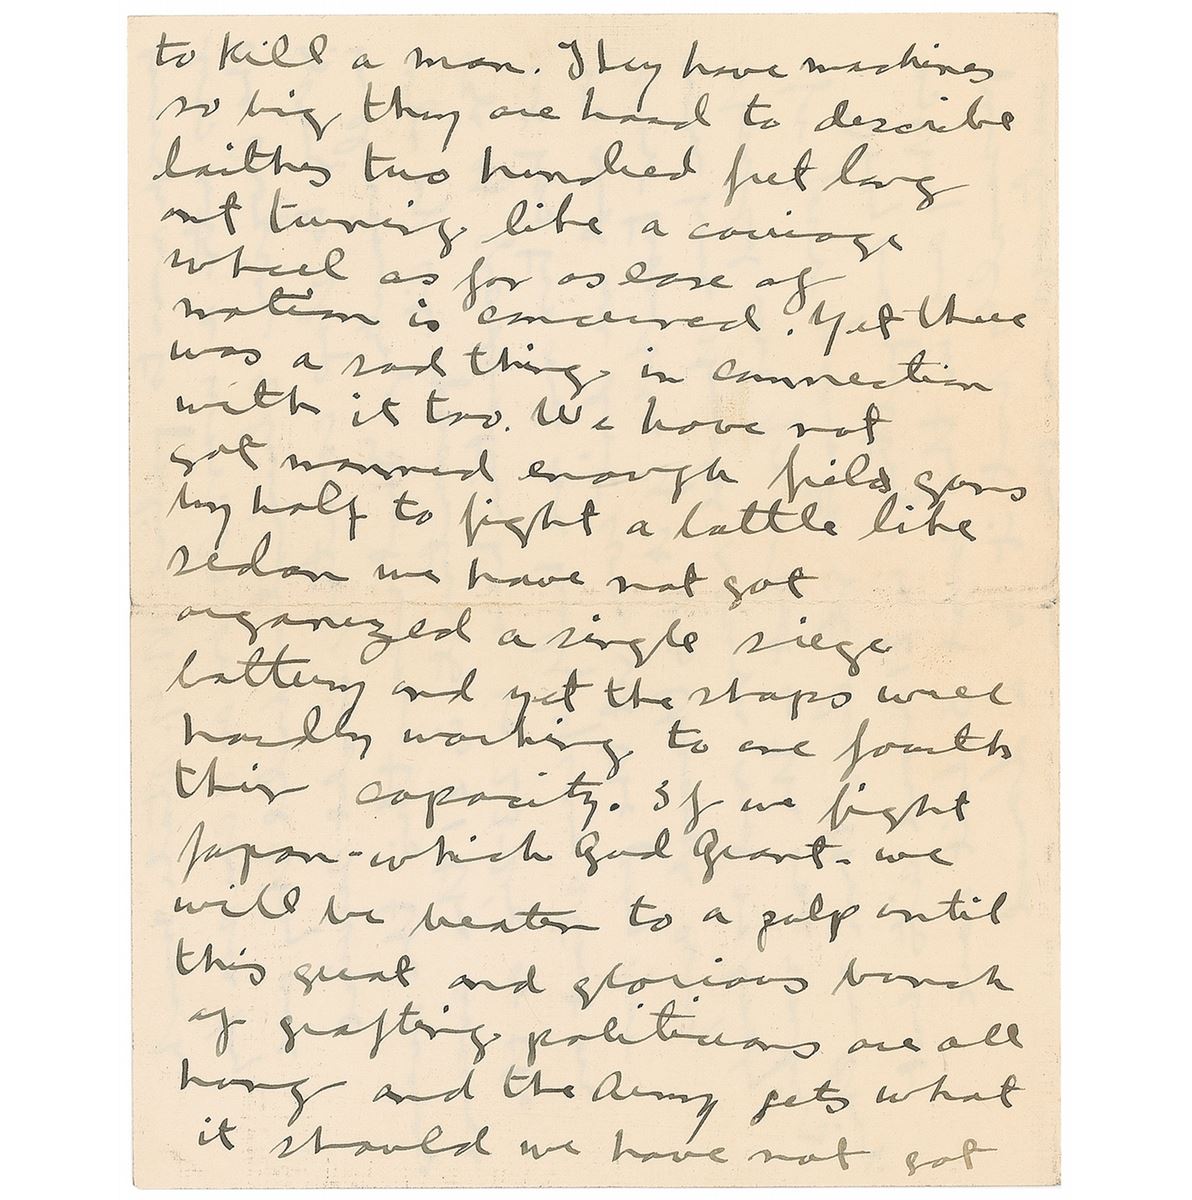 to kill a man. They have machines
so big they are hard to describe
laithes two hundred feet long
ant turning like a carriage
wheel as far as ease of
motion is concerned. Yet there
was a sad thing in connection
with it too. We have not
got manned enough field guns
by half to fight a battle like
sedan we have not got
organized a single siege
battery and yet the shops were
hardly working to one fourth
thir capacity. If we fight
Japan - which God Grant - we
will be beaten to a pulp until
this great and glorious bunch
of grafting politicians are all
hung and the Army gets what
it should we have not got